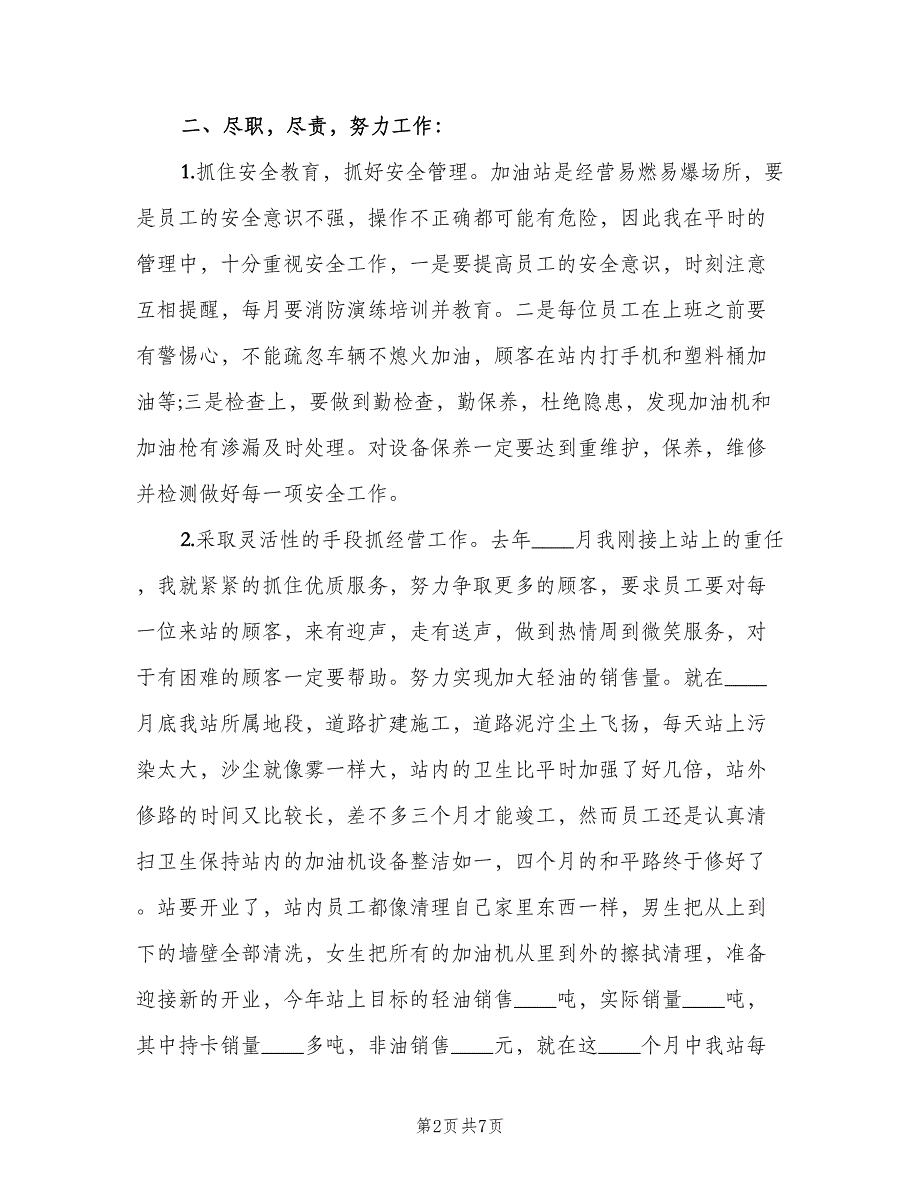 二、尽职，尽责，努力工作：
1.抓住安全教育，抓好安全管理。加油站是经营易燃易爆场所，要
是员工的安全意识不强，操作不正确都可能有危险，因此我在平时的
管理中，十分重视安全工作，一是要提高员工的安全意识，时刻注意
互相提醒，每月要消防演练培训并教育。二是每位员工在上班之前要
有警惕心，不能疏忽车辆不熄火加油，顾客在站内打手机和塑料桶加
油等;三是检查上，要做到勤检查，勤保养，杜绝隐患，发现加油机和
加油枪有渗漏及时处理。对设备保养一定要达到重维护，保养，维修
并检测做好每一项安全工作。
2.采取灵活性的手段抓经营工作。去年____月我刚接上站上的重任
，我就紧紧的抓住优质服务，努力争取更多的顾客，要求员工要对每
一位来站的顾客，来有迎声，走有送声，做到热情周到微笑服务，对
于有困难的顾客一定要帮助。努力实现加大轻油的销售量。就在____
月底我站所属地段，道路扩建施工，道路泥泞尘土飞扬，每天站上污
染太大，沙尘就像雾一样大，站内的卫生比平时加强了好几倍，站外
修路的时间又比较长，差不多三个月才能竣工，然而员工还是认真清
扫卫生保持站内的加油机设备整洁如一，四个月的和平路终于修好了
。站要开业了，站内员工都像清理自己家里东西一样，男生把从上到
下的墙壁全部清洗，女生把所有的加油机从里到外的擦拭清理，准备
迎接新的开业，今年站上目标的轻油销售____吨，实际销量____吨，
其中持卡销量____多吨，非油销售____元，就在这____个月中我站每
第2页 共7页